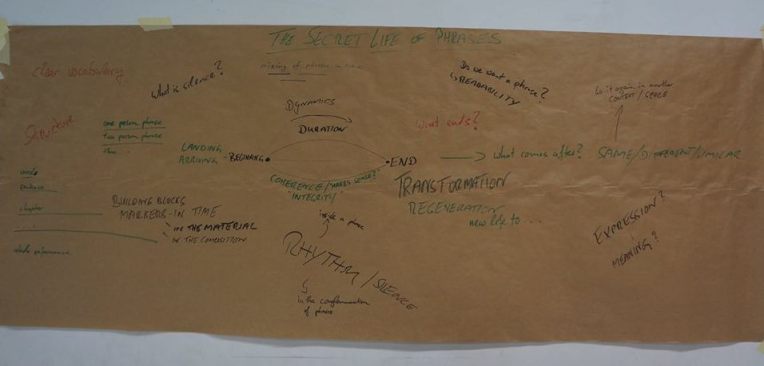 THE SECRET LIFE OF PHRASES
clear vocabulary
What is silence?
of phrases in time
Do we want a phrase?
READABILITY
do it again in another
CONTEXT/SPACE
Structure
one person phrase
two person phrase
DYNAMICS
DURATION
what ends?
LANDING
ARRIVING
BEGINNING
END
what comes after?
SAME/DIFFERENT/SIMILAR
COHERENCE/makes sense?
INTEGRITY
TRANSFORMATION
REGENERATION
new life to ...
words
sentence
chapter
whole performance
BUILDING BLOCKS
MARKERS IN TIME
IN THE MATERIAL
IN THE COMPOSITION
inside a phrase
RHYTHM/SILENCE
in the
of phrases
EXPRESSION?
MEANING?